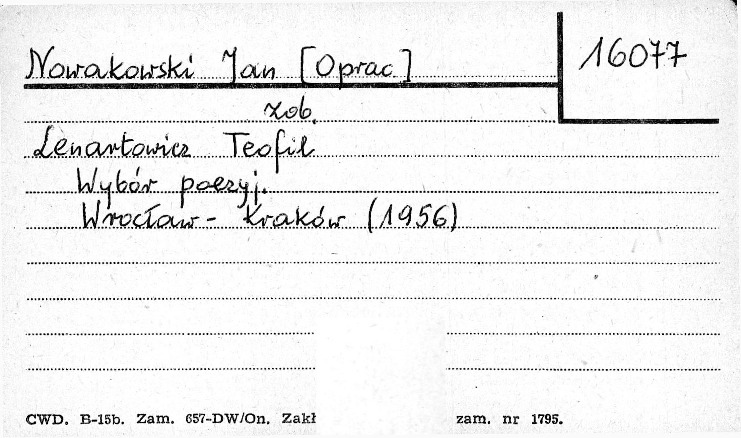 Nowakowski Jan [Oprac.]
16077
zob.
Lenartowicz Teofil
Wybór poezyj.
Wrocław - Kraków (1956)
CWD. B-15b. Zam. 657-DW/On. Zakł zam. nr 1795.